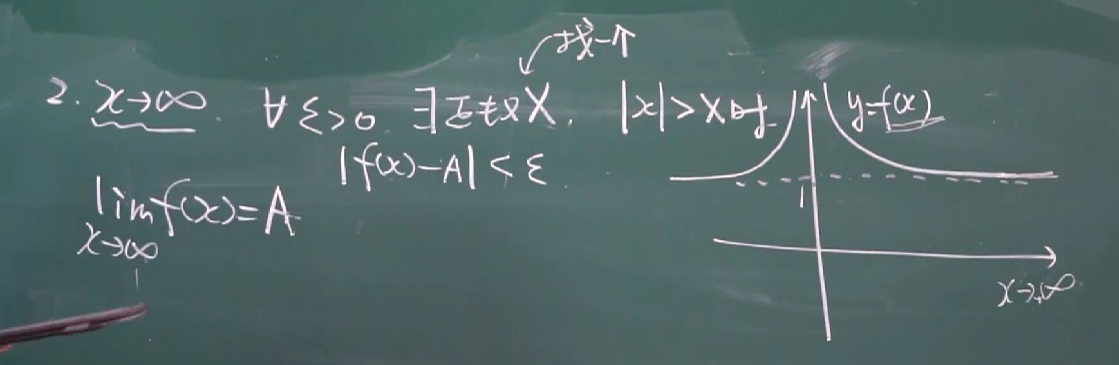 找一个
2. x→∞. ∀ ε>0 ∃正数X. |x|>X时
|f(x)-A|<ε.
lim f(x)=A
x→∞
y=f(x)
1
x→∞